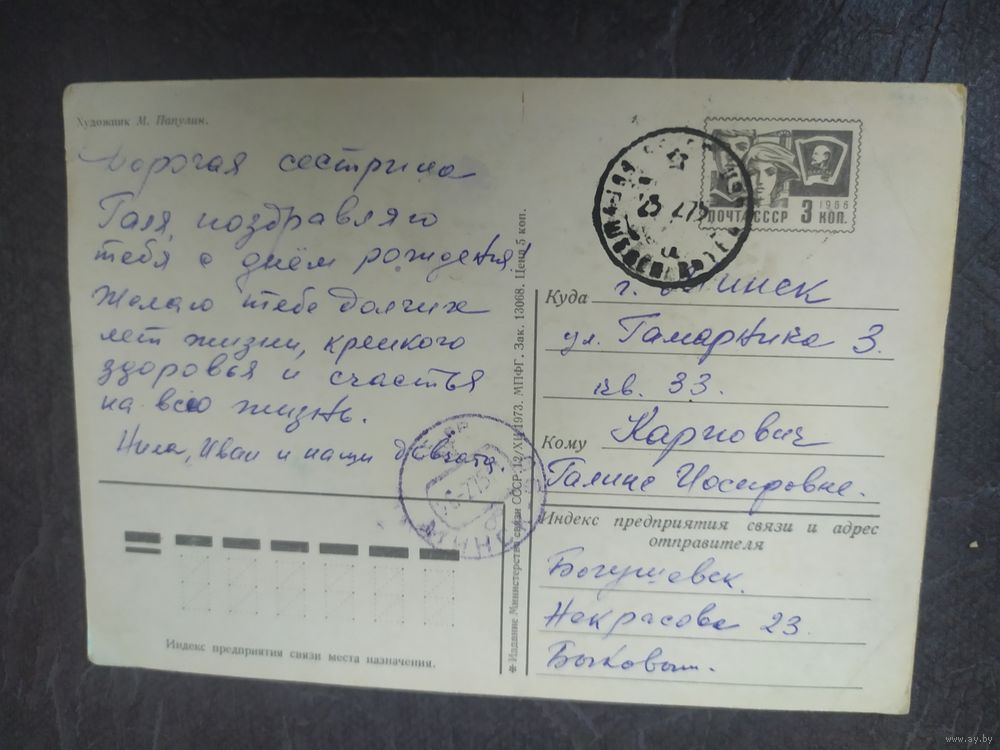 Художник М. Папулин.
Дорогая сестрица
Галя, поздравляю
тебя с днём рождения!
Желаю тебе долгих
лет жизни, крепкого
здоровья и счастья
на всю жизнь.
Нила, Иван и наши девчата.
Индекс предприятия связи места назначения.
✱ Издание Министерства связи СССР. 12/XII 1973. МПФГ. Зак. 13068. Цена 5 коп.
ПОЧТА СССР 3 КОП.
1966
Куда г. Минск
ул. Гамарника 3.
кв. 33.
Кому Карпович
Галине Иосифовне.
Индекс предприятия связи и адрес
отправителя
Богушевск.
Некрасова 23
Быковым.
www.ay.by